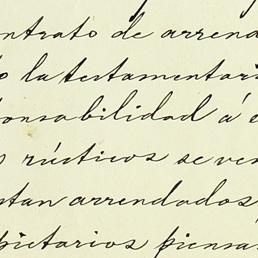 ontrato de arrend
o la testamentari
onsabilidad á e
s rústicos se ven
stan arrendados,
pietarios piensa